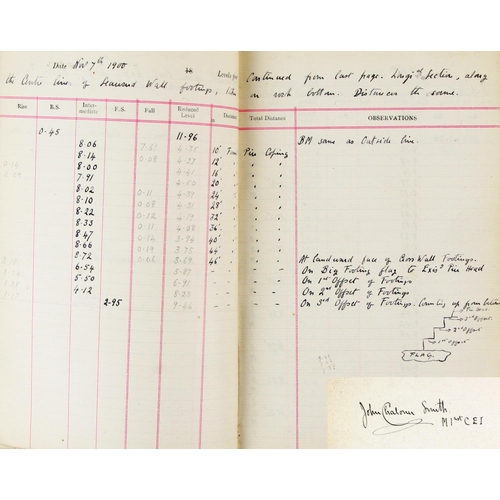 Date Nov 7th 1900 18 Levels for Continued from last page. Longl Section, along
the Centre line of Seaward Wall footings, on rock bottom. Distances the same.
Rise B.S. Inter-mediate F.S. Fall Reduced Level Distance Total Distance OBSERVATIONS
0.45 11.96 BM same as Outside line.
8.06 7.61 4.35 10' From Pier Coping
8.14 0.08 4.27 12' " "
8.00 4.41 16' " "
7.91 4.50 20' " "
8.02 0.11 4.39 24' " "
8.10 0.08 4.31 28' " "
8.22 0.12 4.19 32' " "
8.33 0.11 4.08 36' " "
8.47 0.14 3.94 40' " "
8.66 0.19 3.75 44' " "
8.72 0.06 3.69 46' " " At landward face of Boss Wall Footings.
6.54 5.87 On Big Footing flag to Exisg Pier Head
5.50 6.91 On 1st Offset of Footings
4.12 On 2nd Offset of Footings
2.95 On 3rd Offset of Footings. Counting up from bottom
3rd Offset.
2nd Offset.
1st Offset
FLAG.
John Chaloner Smith
M Inst CEI